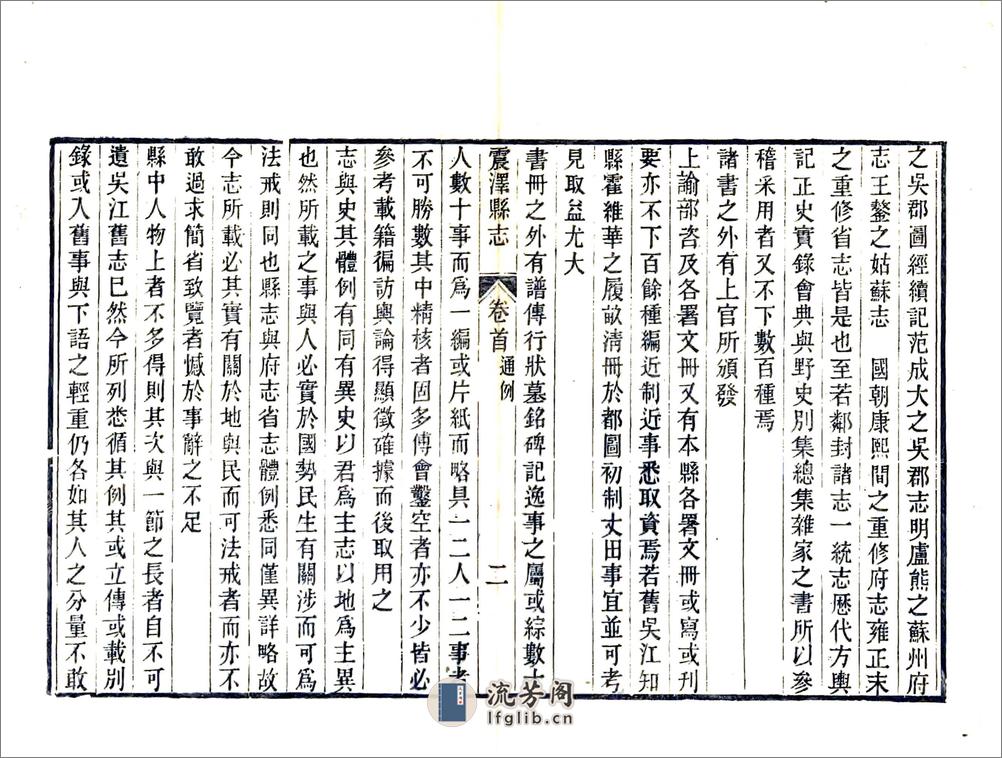 之吳郡圖經續記范成大之吳郡志明盧熊之蘇州府
志王鏊之姑蘇志　國朝康熙間之重修府志雍正末
之重修省志皆是也至若鄰封諸志一統志歷代方輿
記正史實錄會典與野史別集總集雜家之書所以參
稽采用者又不下數百種焉
諸書之外有上官所頒發
上諭部咨及各署文冊又有本縣各署文冊或寫或刊
要亦不下百餘種編近制近事悉取資焉若舊吳江知
縣霍維華之履畝淸冊於都圖初制丈田事宜並可考
見取益尤大
書冊之外有譜傳行狀墓銘碑記逸事之屬或綜數十
震澤縣志　卷首　通例　二
人數十事而爲一編或片紙而略具一二人一二事者
不可勝數其中精核者固多傅會鑿空者亦不少皆必
參考載籍徧訪輿論得顯徵確據而後取用之
志與史其體例有同有異史以君爲主志以地爲主異
也然所載之事與人必實於國勢民生有關涉而可爲
法戒則同也縣志與府志省志體例悉同僅異詳略故
今志所載必其實有關於地與民而可法戒者而亦不
敢過求簡省致覽者憾於事辭之不足
縣中人物上者不多得則其次與一節之長者自不可
遺吳江舊志已然今所列悉循其例其或立傳或載別
錄或入舊事與下語之輕重仍各如其人之分量不敢
流芳阁
lfglib.cn